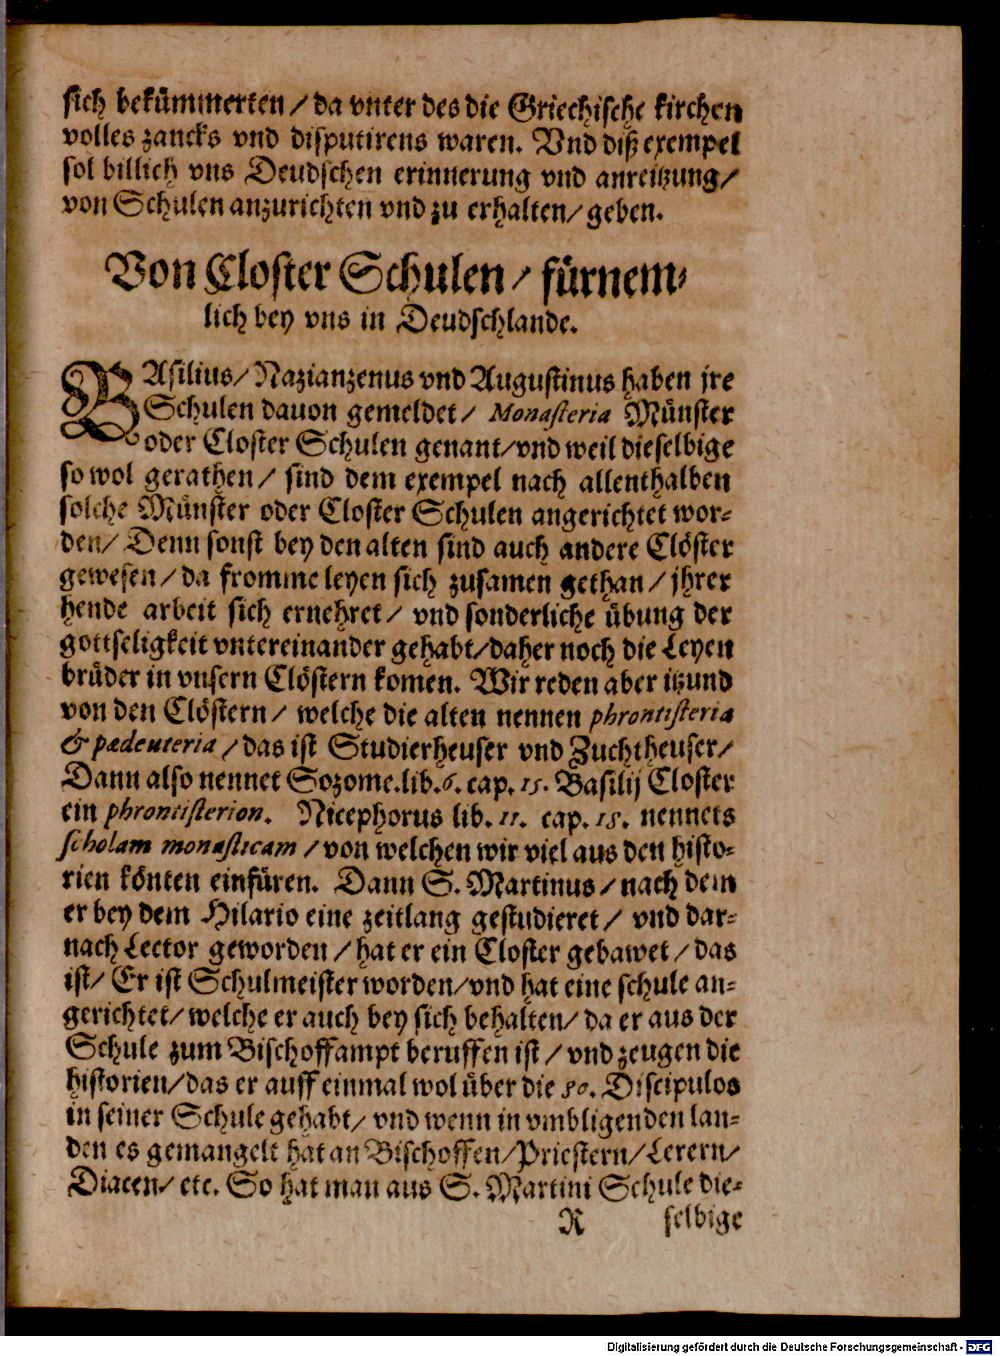 sich bekümmerten / da vnter des die Griechische kirchen
volles zancks vnd disputirens waren. Vnd diß exempel
sol billich vns Deudschen erinnerung vnd anreitzung /
von Schulen anzurichten vnd zu erhalten / geben.
Von Closter Schulen / fürnem-
lich bey vns in Deudschlande.
BAsilius / Nazianzenus vnd Augustinus haben jre
Schulen dauon gemeldet / Monasteria Münster
oder Closter Schulen genant / vnd weil dieselbige
so wol gerathen / sind dem exempel nach allenthalben
solche Münster oder Closter Schulen angerichtet wor-
den / Denn sonst bey den alten sind auch andere Clöster
gewesen / da fromme leyen sich zusamen gethan / jhrer
hende arbeit sich ernehret / vnd sonderliche übung der
gottseligkeit vntereinander gehabt / daher noch die Leyen
brüder in vnsern Clöstern komen. Wir reden aber itzund
von den Clöstern / welche die alten nennen phrontisteria
& pædeuteria / das ist Studierheuser vnd Zuchtheuser /
Dann also nennet Sozome. lib. 6. cap. 15. Basilij Closter
ein phrontisterion. Nicephorus lib. 11. cap. 18. nennets
scholam monasticam / von welchen wir viel aus den histo-
rien könten einfüren. Dann S. Martinus / nach dem
er bey dem Hilario eine zeitlang gestudieret / vnd dar-
nach Lector geworden / hat er ein Closter gebawet / das
ist / Er ist Schulmeister worden / vnd hat eine schule an-
gerichtet / welche er auch bey sich behalten / da er aus der
Schule zum Bischoffampt beruffen ist / vnd zeugen die
historien / das er auff einmal wol über die 80. Discipulos
in seiner Schule gehabt / vnd wenn in vmbligenden lan-
den es gemangelt hat an Bischoffen / Priestern / Lerern /
Diacen / etc. So hat man aus S. Martini Schule die-
R selbige
Digitalisierung gefördert durch die Deutsche Forschungsgemeinschaft - DFG